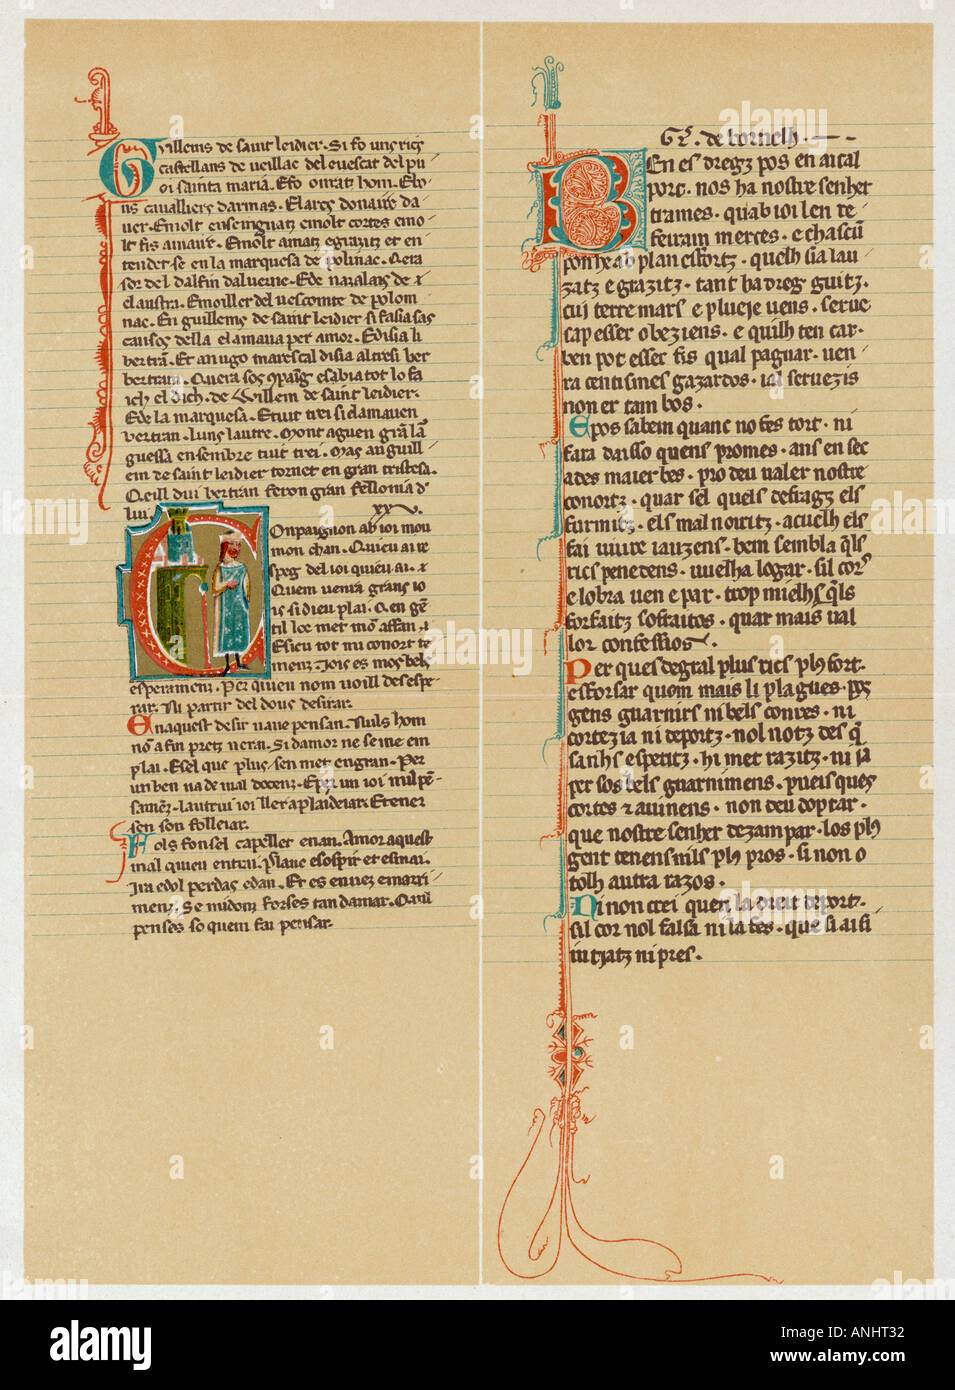 Guillems de saint leidier. Si fo uns rics
castellans de ueillac del euescat del pu
oi sainta maria. E fo onratz hom. E bo
ns caualliers darmas. E larcs donaire da
uer. E molt enseingnatz e molt cortes e mo
lt fis amaire. E molt amatz e grazitz et en
tendet se en la marquesa de polinac. Q era
sor del dalfin daluerne. E de nazalais de
claustra. E moiller del uescomte de polom
nac. En guillems de saint leidier si fasia sas
cansos della e lamaua per amor. E disia li
bertran. Et an ugo marescal disia altresi ber
bertran. Q era sos
ich el dich. de Willem de saint leidier.
E de la marquesa. E tuit trei si clamauen
bertran. luns lautre. Mont aguen
guessa ensembre tuit trei. Mas an guill
em de saint leidier tornet en gran tristesa.
Q eill dui bertran feron gran fellonia d
lui. xx
Conpaignon ab ioi mou
mon chan. Q uieu ai re
speg del ioi quieu ai.
Quem uenra
is si dieu plai. Q en
til loc met
E sieu tot mi conort te
menz. Iois es mos bels
esperamenz. Per quien nom uoill desespe
rar. Ni partir del dous desirar.
En aquest desir uaue pensan. Nuls hom
no a fin pretz uerai. Si damor ne se ine em
plai. E sel que plus sen met engran. Per
un ben na de mal docenz. E per un ioi mil
samenz. Lautrui ioi ller a plaideiar. E tener
sen son folleiar.
Fols fon sel capeller enan. Amor aquest
mal quieu entrai. Plaue e sospir et esmai.
Ira e dol perdas e dan. Et es en uez e marri
menz. Se midonz forses tan damar. Q auil
penses so quem fai pensar.
Gr. de bornelh.
Ben es dregz pos en aital
port. nos ha nostre senher
trames. quab ioi len re
feiram merces. e chascu
pon he ab plan esfortz. quelh sia lau
zatz e grazitz. tant ha dreg guitz.
cui terre mars e plueie uens. serue
cap esser obeziens. e quilh ten car
ben pot esser fis qual pagnar. uen
ra centismes gazardos. ial seruezis
non er tam bos.
E pos sabem quanc no fes tort. ni
fara daisso quens promes. ans en sec
ades maier bes. pro deu ualer nostre
conortz. quar sel quels defragz els
furmitz. els mal noiritz. acuelh els
fai uiure iauzens. bem sembla qls
rics penedens. uuelha logar. sil cors
e lobra uen e par. trop mielhs qls
forfaitz sofraitos. quar mais ual
lor confessios.
Per ques degral plus rics plus fort.
esforsar quom mais li plagues. pos
gens guarnirs ni bels conres. ni
cortezia ni deportz. nol notz des q
sanhs esperitz. hi met razitz. ni ia
per sos bels guarnimens. pueis ques
cortes e auinens. non deu doptar.
que nostre senher dezampar. los plus
gent tenens nils plus pros. si non o
tolh autra razos.
Ni non crei quen la dreit deport.
sil cor nol falsa ni la fes. que si aisi
intratz ni pres.
a alamy
alamy
Image ID: ANHT32
www.alamy.com